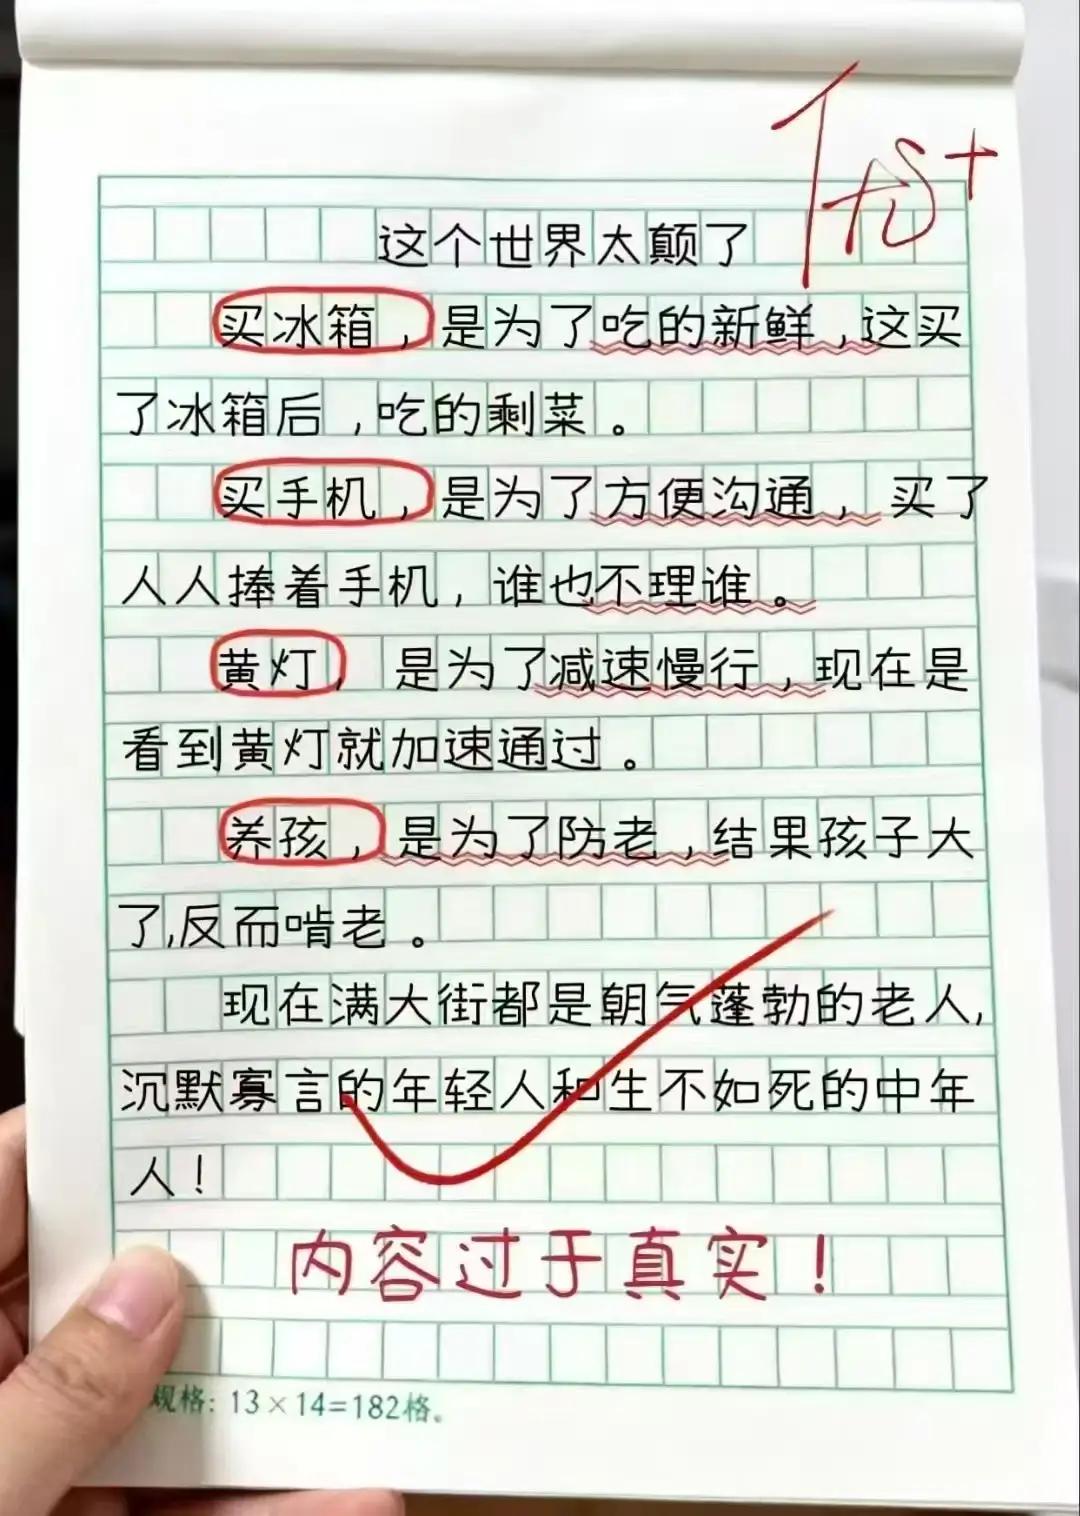 这个世界太颠了
买冰箱，是为了吃的新鲜，这买
了冰箱后，吃的剩菜。
买手机，是为了方便沟通，买了
人人捧着手机，谁也不理谁。
黄灯，是为了减速慢行，现在是
看到黄灯就加速通过。
养孩，是为了防老，结果孩子大
了,反而啃老。
现在满大街都是朝气蓬勃的老人,
沉默寡言的年轻人和生不如死的中年
人！
内容过于真实！
规格：13×14=182格。